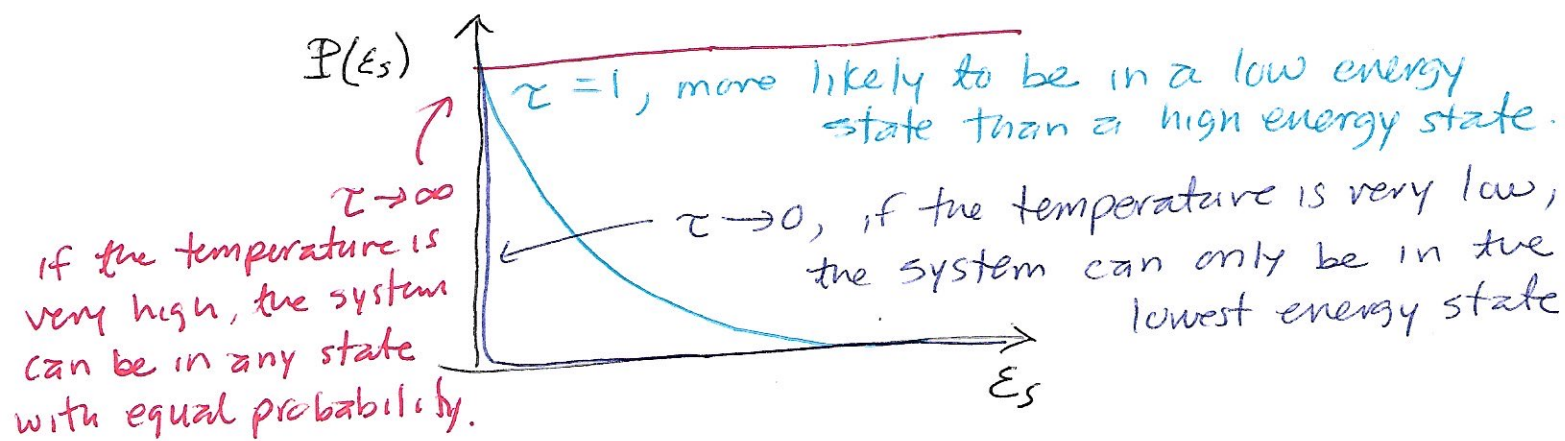 P(εs)
τ = 1, more likely to be in a low energy
state than a high energy state.
τ → ∞
if the temperature is
very high, the system
can be in any state
with equal probability.
τ → 0, if the temperature is very low,
the system can only be in the
lowest energy state
εs